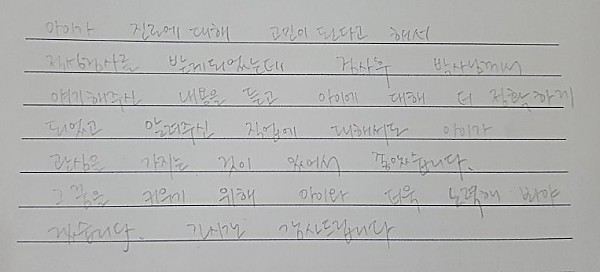 아이가 진로에 대해 고민이 된다고 해서
적성검사를 받게되었는데 검사후 박사님께서
얘기해주신 내용을 듣고 아이에 대해 더 정확하게
되었고 알려주신 직업에 대해서도 아이가
관심을 가지는 것이 있어서 좋았습니다.
그 꿈을 키우기 위해 아이와 더욱 노력해 봐야
겠습니다. 감사드립니다